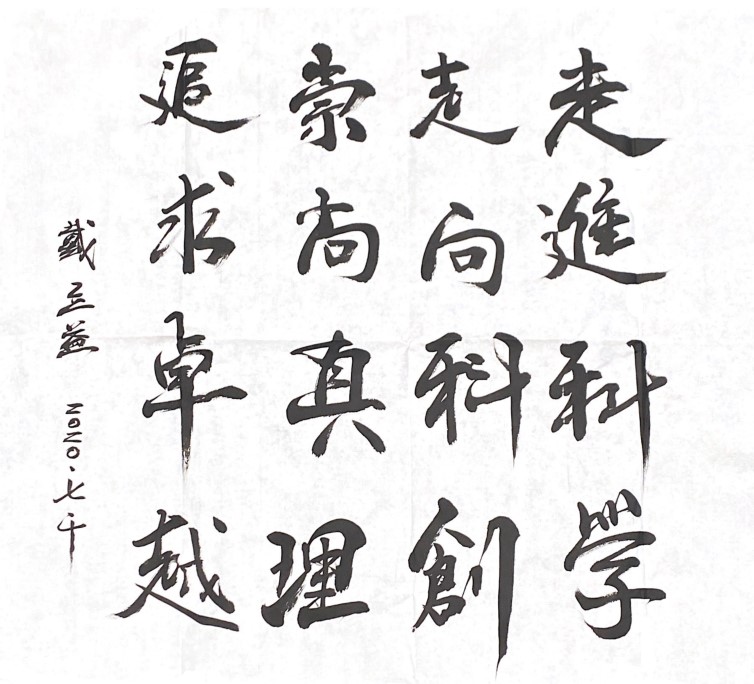 走進科學
走向科創
崇尚真理
追求卓越
戴立益 2020.七.十